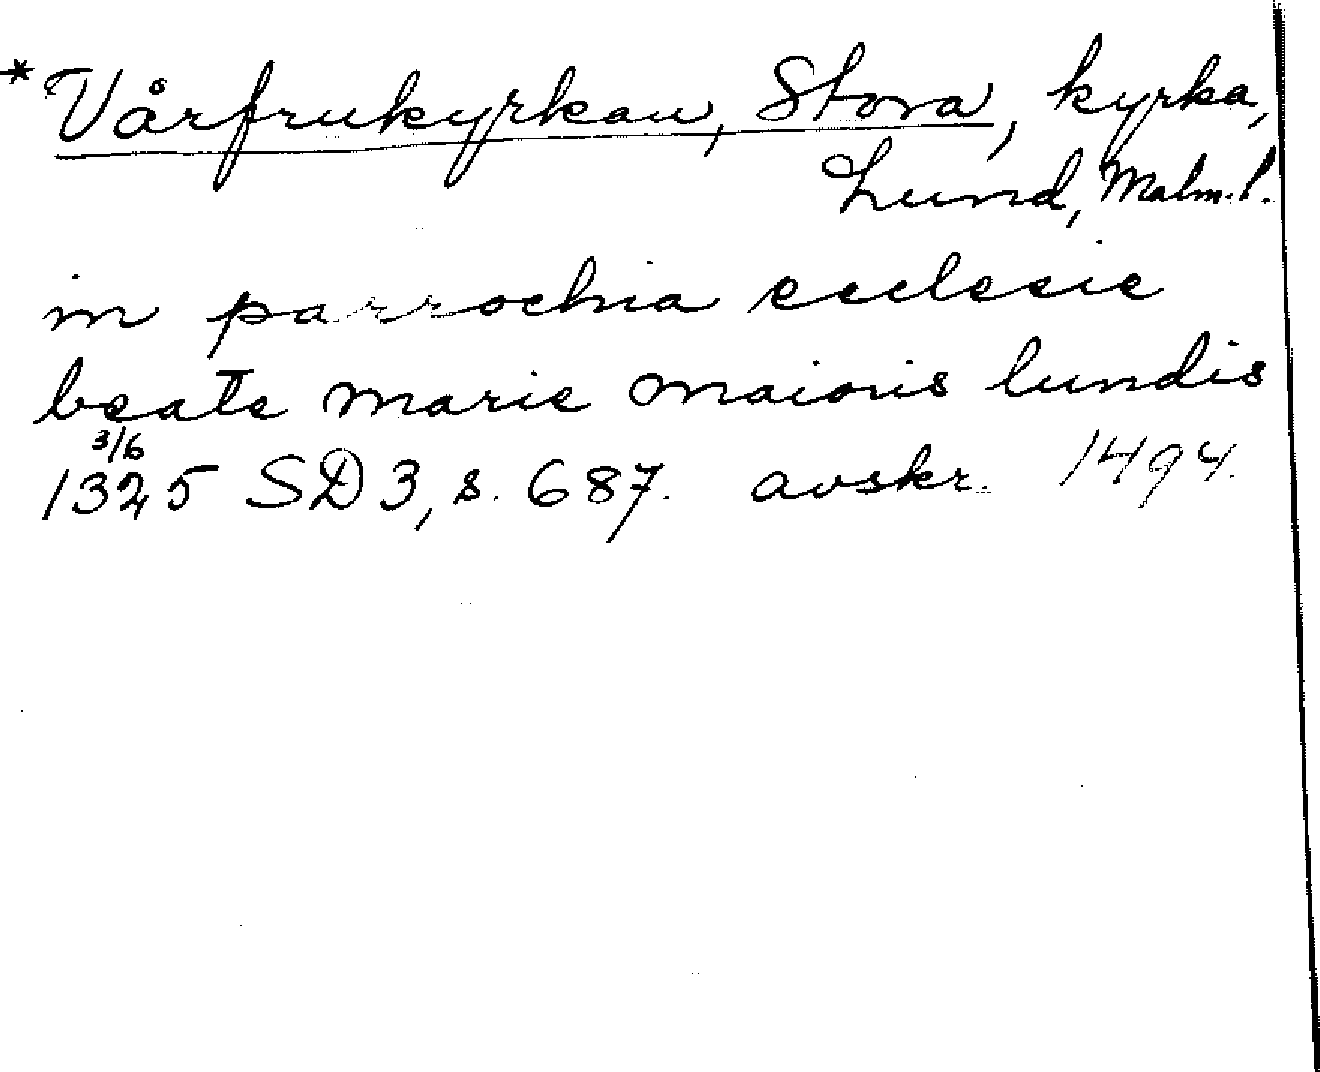 * Vårfrukyrkan, Stora, kyrka,
Lund, Malm. l.
in parrochia ecclesie
beate marie maioris lundis
3/6
1325 SD 3, s. 687. avskr. 1494.